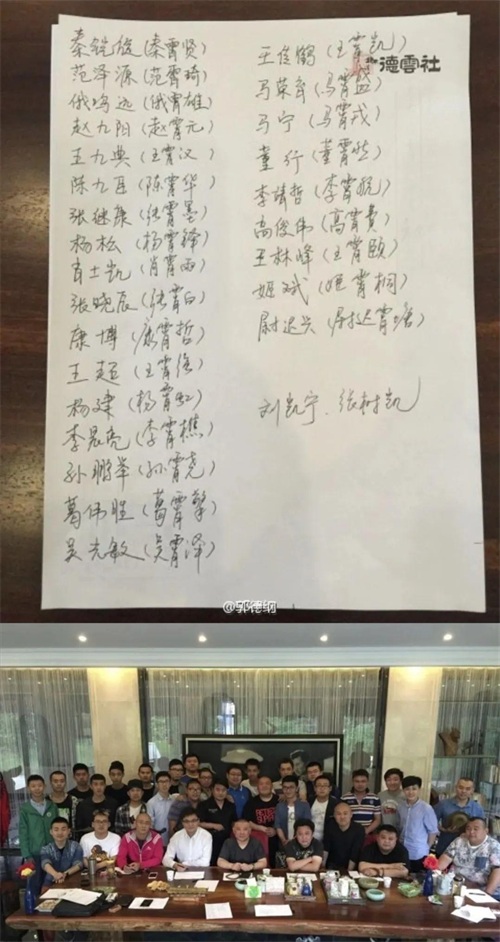 秦铠俊(秦霄贤)
范泽源(范霄琦)
俄鸣远(俄霄雄)
赵九阳(赵霄元)
王九典(王霄汉)
陈九臣(陈霄华)
张继康(张霄墨)
杨松(杨霄锋)
肖士凯(肖霄雨)
张晓辰(张霄白)
康博(康霄哲)
王超(王霄)
杨建(杨霄虹)
李晨亮(李霄樵)
孙鹏举(孙霄尧)
葛伟胜(葛霄擎)
吴克敏(吴霄泽)
德雲社
王佳鹤(王霄凯)
马荣育(马霄盛)
马宁(马霄戎)
董行(董霄)
李靖哲(李霄航)
高俊伟(高霄贲)
王林峰(王霄颐)
姬斌(姬霄桐)
尉迟兴(尉迟霄塘)
刘凯宁、张树凯
@郭德纲